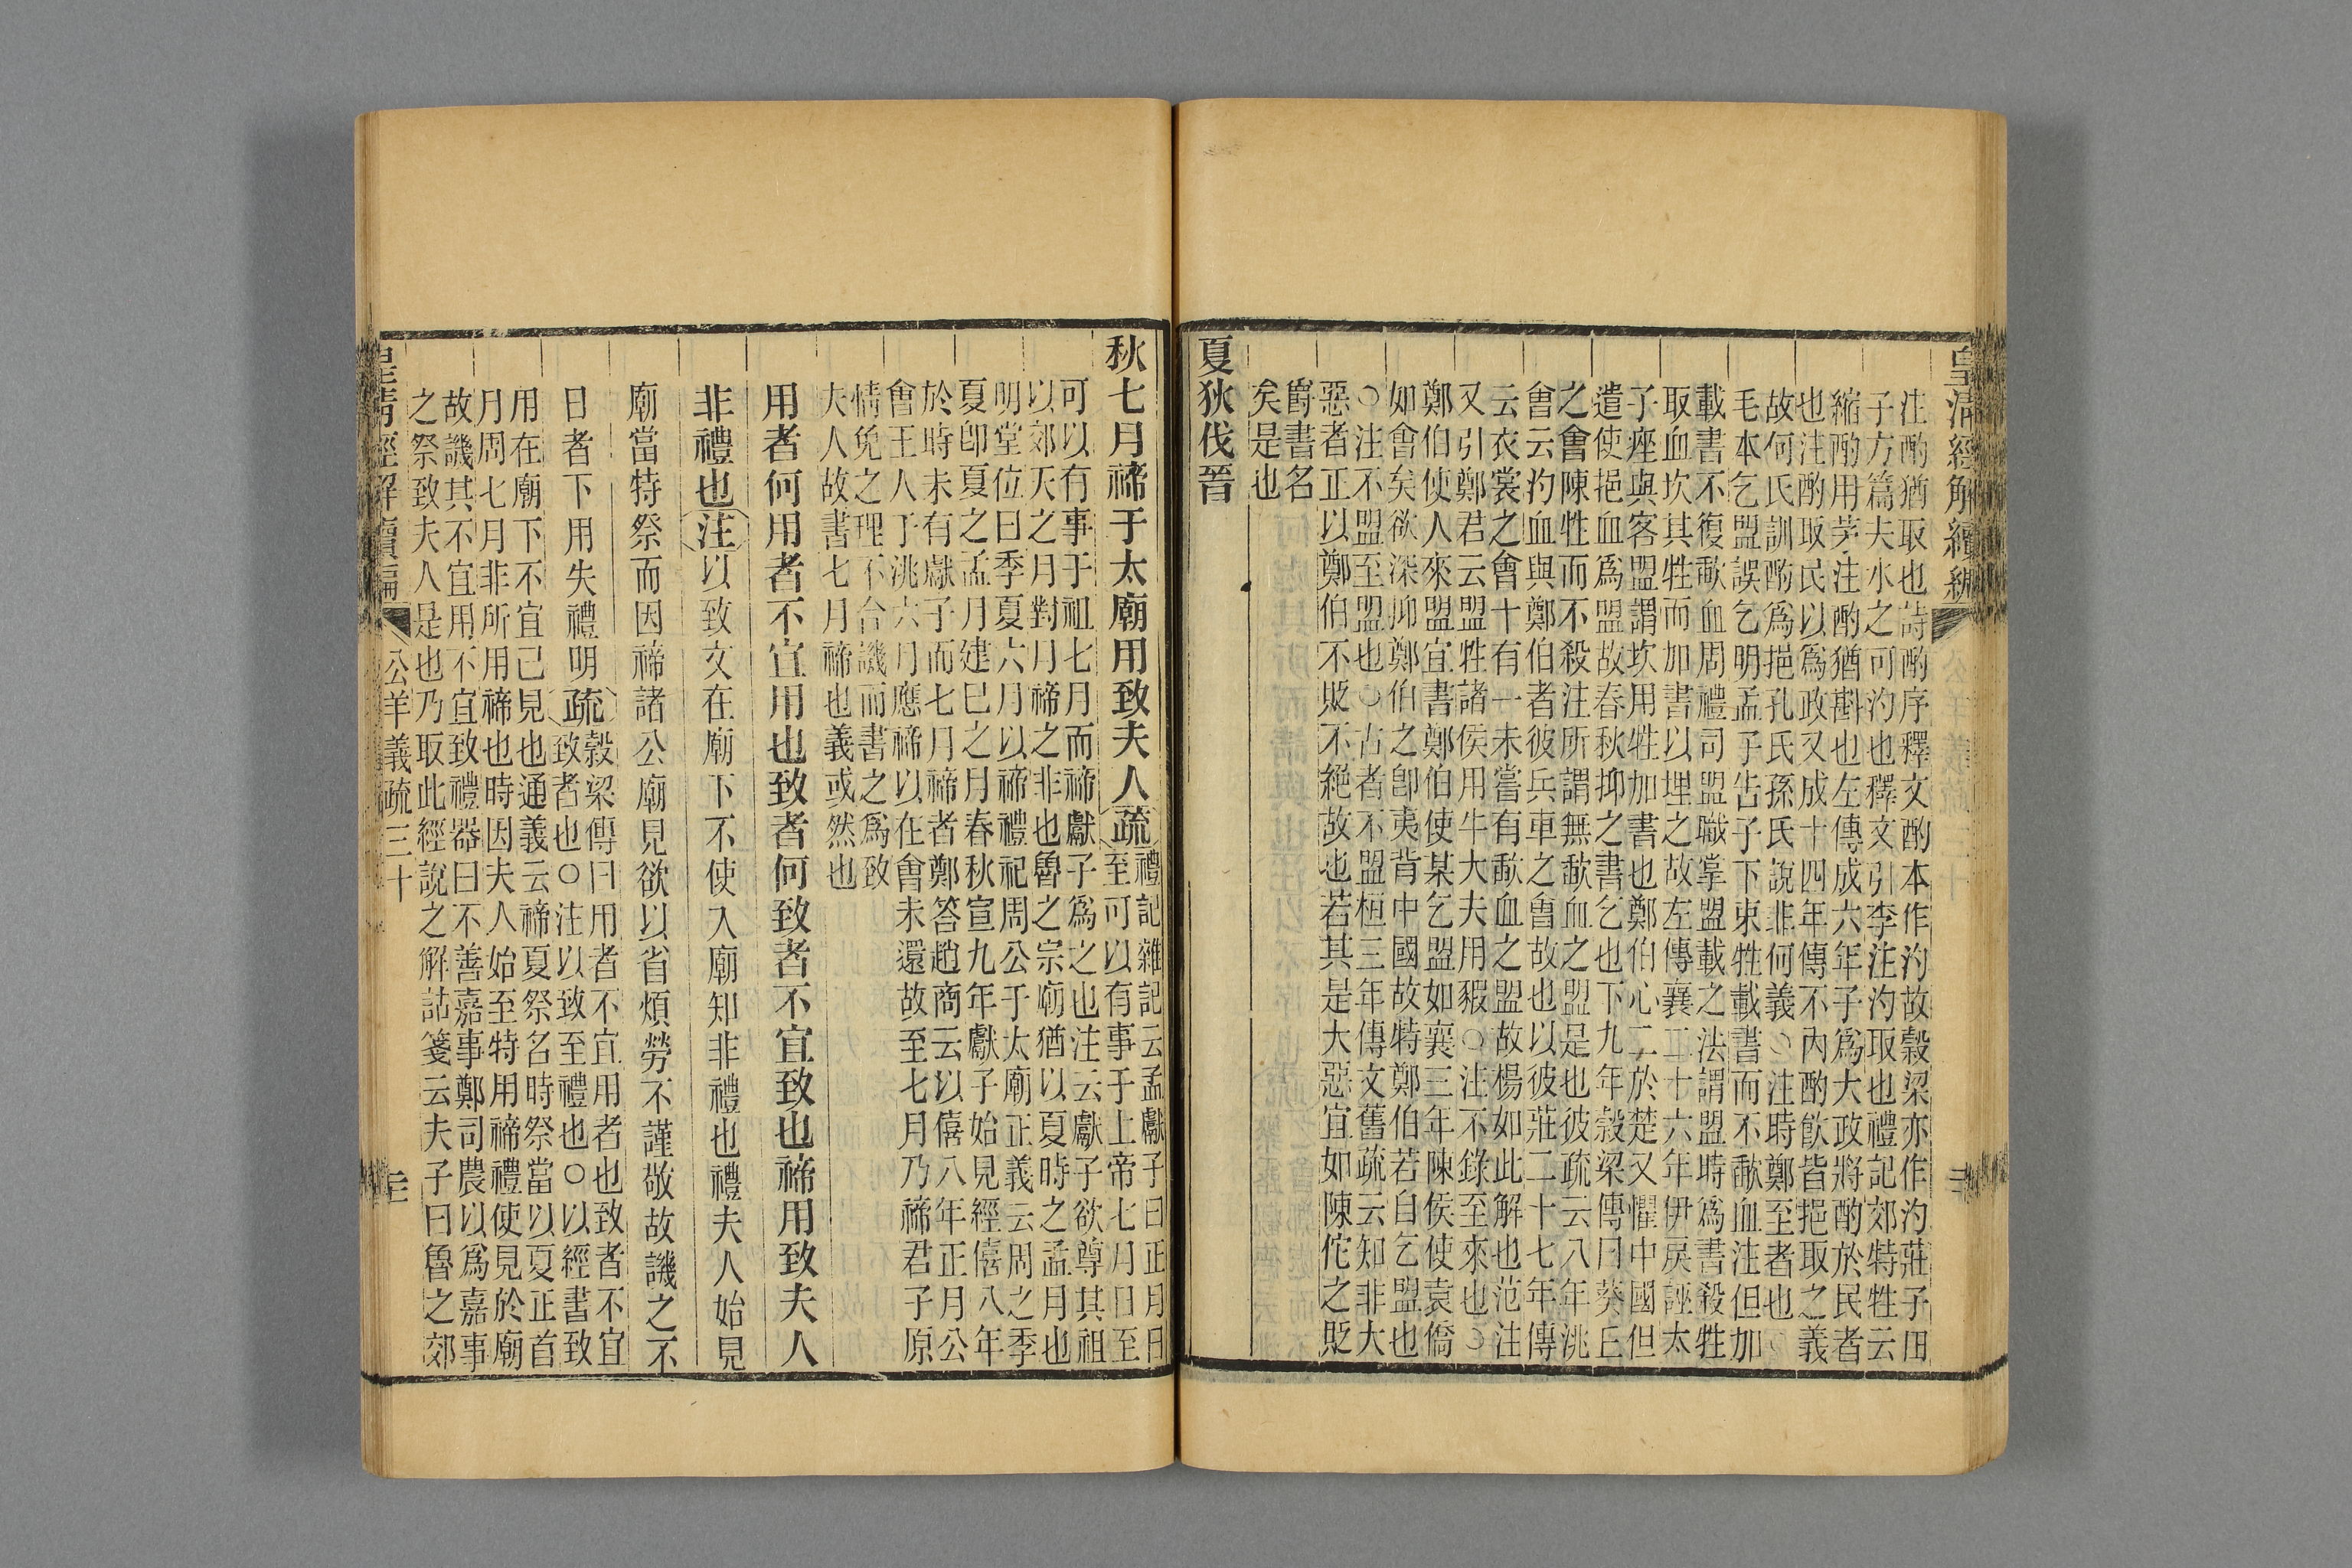 皇清經解續編
注酌猶取也詩酌序釋文酌本作汋故穀梁亦作汋莊子田
子方篇夫水之可汋也釋文引李注汋取也禮記郊特牲云
縮酌用茅注酌猶斟也左傳成六年子爲大政將酌於民者
也注酌取民以爲政又成十四年傳不內酌飮皆挹取之義
故何氏訓酌爲挹孔氏孫氏說非何義○注時鄭至者也○
毛本乞盟誤乞明孟子告子下束牲載書而不歃血注但加
載書不復歃血周禮司盟職掌盟載之法謂盟時爲書殺牲
取血坎其牲而加書以埋之故左傳襄二十六年伊戾誣太
子痤與客盟謂坎用牲加書也鄭伯心二於楚又懼中國但
遣使挹血爲盟故春秋抑之書乞也下九年穀梁傳曰葵丘
之會陳牲而不殺注所謂無歃血之盟是也彼疏云八年洮
會云汋血與鄭伯者彼兵車之會故也以彼莊二十七年傳
云衣裳之會十有一未嘗有歃血之盟故楊如此解也范注
又引鄭君云盟牲諸侯用牛大夫用豭○注不錄至來也○
鄭伯使人來盟宜書鄭伯使某乞盟如襄三年陳侯使袁僑
如會矣欲深抑鄭伯之卽夷背中國故特鄭伯若自乞盟也
○注不盟至盟也○古者不盟桓三年傳文舊疏云知非大
惡者正以鄭伯不貶不絕故也若其是大惡宜如陳佗之貶
爵書名
矣是也
夏狄伐晉
秋七月禘于太廟用致夫人疏禮記雜記云孟獻子曰正月日
至可以有事于上帝七月日至
可以有事于祖七月而禘獻子爲之也注云獻子欲尊其祖
以郊天之月對月禘之非也魯之宗廟猶以夏時之孟月也
明堂位曰季夏六月以禘禮祀周公于太廟正義云周之季
夏卽夏之孟月建巳之月春秋宣九年獻子始見經僖八年
於時未有獻子而七月禘者鄭答趙商云以僖八年正月公
會王人于洮六月應禘以在會未還故至七月乃禘君子原
情免之理不合譏而書之爲致
夫人故書七月禘也義或然也
用者何用者不宜用也致者何致者不宜致也禘用致夫人
非禮也注以致文在廟下不使入廟知非禮也禮夫人始見
廟當特祭而因禘諸公廟見欲以省煩勞不謹敬故譏之不
日者下用失禮明疏穀梁傳曰用者不宜用者也致者不宜
致者也○注以致至禮也○以經書致
用在廟下不宜己見也通義云禘夏祭名時祭當以夏正首
月周七月非所用禘也時因夫人始至特用禘禮使見於廟
故譏其不宜用不宜致禮器曰不善嘉事鄭司農以爲嘉事
之祭致夫人是也乃取此經說之解詁箋云夫子曰魯之郊
皇清經解續編 公羊義疏三十